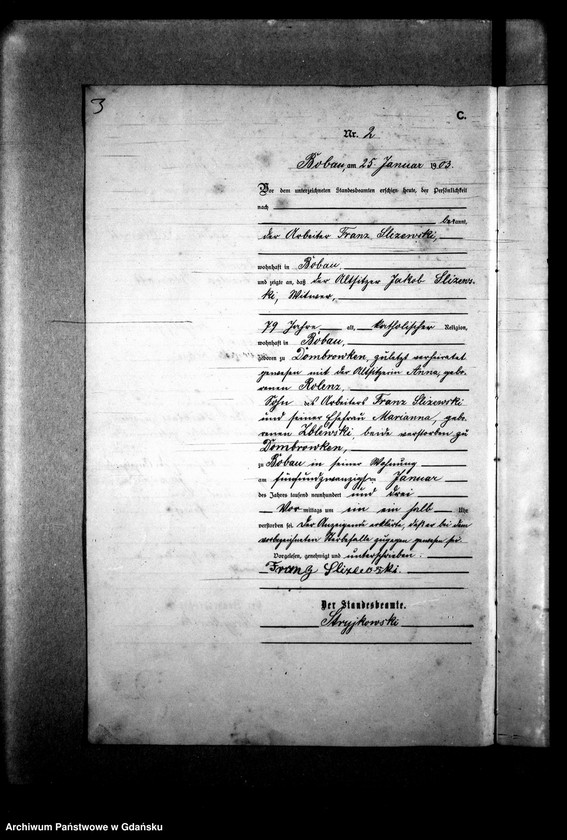 3
C.
Nr. 2
Bobau, am 25. Januar 1903.
Vor dem unterzeichneten Standesbeamten erschien heute, der Persönlichkeit
nach
bekannt,
der Arbeiter Franz Slizewski,
wohnhaft in Bobau,
und zeigte an, daß der Altsitzer Jakob Slizews-
ki, Witwer,
79 Jahre alt, katholischer Religion,
wohnhaft in Bobau,
geboren zu Dombrowken, zuletzt verheiratet
gewesen mit der Altsitzerin Anna, gebo-
renen Rolenz,
Sohn des Arbeiters Franz Slizewski
und seiner Ehefrau Marianna, gebo-
renen Zblewski beide verstorben zu
Dombrowken,
zu Bobau in seiner Wohnung
am fünfundzwanzigsten Januar
des Jahres tausend neunhundert und drei
Vormittags um ein ein halb Uhr
verstorben sei. Der Anzeigende erklärte, daß er bei dem
vorbezeichneten Sterbefalle zugegen gewesen sei.
Vorgelesen, genehmigt und unterschrieben:
Franz Slizewski.
Der Standesbeamte.
Stryjkowski
Archiwum Państwowe w Gdańsku